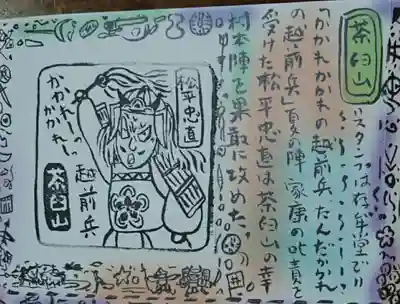 茶臼山
スタンプは存牟堂で!!
「かかれかかれの越前兵、たんだかかれ
の越前兵」夏の陣、家康の叱責を
受けた松平忠直は茶臼山の幸
村本陣を果敢に攻めた。
松平忠直
かかれーっ
かかれーっ
越前兵
茶臼山